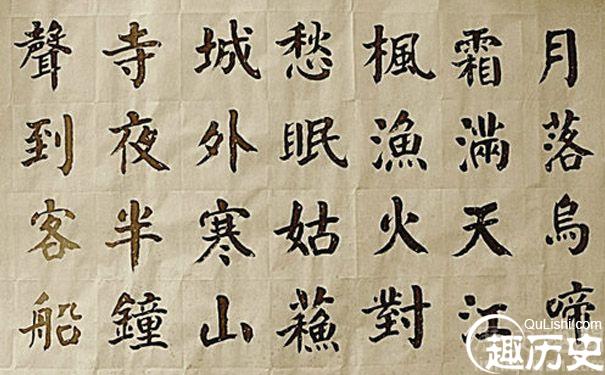 月落烏啼
霜滿天江
楓漁火對
愁眠姑蘇
城外寒山
寺夜半鐘
聲到客船
QuLishi.com
趣历史